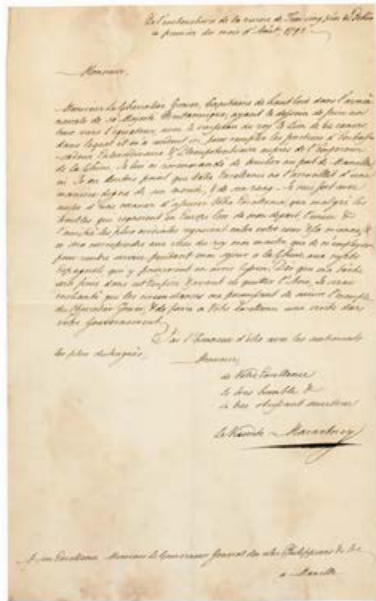 de la rivière de près de
premier du mois d'Août, 179
Monsieur,
Monsieur le Chevalier Gower, Capitaine de haut bord dans l'armée
navale de sa Majesté Britannique, ayant le dessein de faire
vers l'équateur, avec le vaisseau du roy le Lion de canons
dans lequel on m'a amené ici, pour remplir les fonctions d'Ambas-
sadeur Extraordinaire & Plénipotentiaire auprès de l'Empereur
de la Chine, je lui ai recommandé de toucher au port de Manille,
où Je ne doute point que Votre Excellence ne l'accueillit d'une
manière digne de son monde, & de son rang. Je me sert avec
d'une occasion d'assurer Votre Excellence, que malgré les
troubles qui régnoient en Europe lors de mon départ l'union &
l'amitié les plus cordiales régnoient entre votre cour & la mienne, &
ce sera correspondre aux vues du roy mon maître que de m'employer
pour rendre service pendant mon séjour à la Chine, aux sujets
Espagnols qui y pourroient en avoir besoin. Dès que ma tâche
sera finie dans cet Empire, & avant de quitter l'Asie, Je serai
enchanté que les circonstances me permissent de suivre l'exemple
du Chevalier Gower, & de faire à Votre Excellence une visite dans
votre Gouvernement.
J'ai l'honneur d'être avec les sentiments
les plus distingués,
Monsieur
de Votre Excellence
le très humble &
le très obéissant serviteur
le Vicomte Macartney
A son Excellence Monsieur le Gouverneur Général des isles Philippines &c &c
à Manille